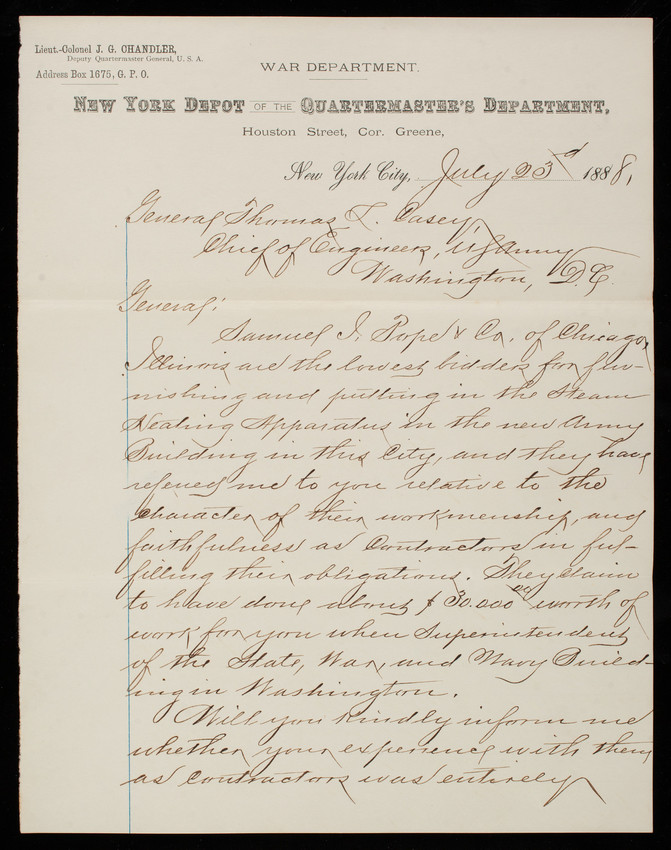 Lieut.-Colonel J. G. CHANDLER,
Deputy Quartermaster General, U. S. A.
Address Box 1675, G. P. O.
WAR DEPARTMENT.
NEW YORK DEPOT OF THE QUARTERMASTER'S DEPARTMENT,
Houston Street, Cor. Greene,
New York City, July 23d 1888,
General Thomas L. Casey,
Chief of Engineers, U.S. Army
Washington, D.C.
General:
Samuel I. Pope & Co. of Chicago,
Illinois are the lowest bidders for fur-
nishing and putting in the Steam
Heating Apparatus in the new Army
Building in this City, and they have
refered me to you relative to the
character of their workmenship, and
faithfulness as Contractors in ful-
filling their obligations. They claim
to have done about $30.000 00 worth of
work for you when Superintendent
of the State, War, and Navy Build-
ing in Washington.
Will you kindly inform me
whether your experience with them
as contractors was entirely